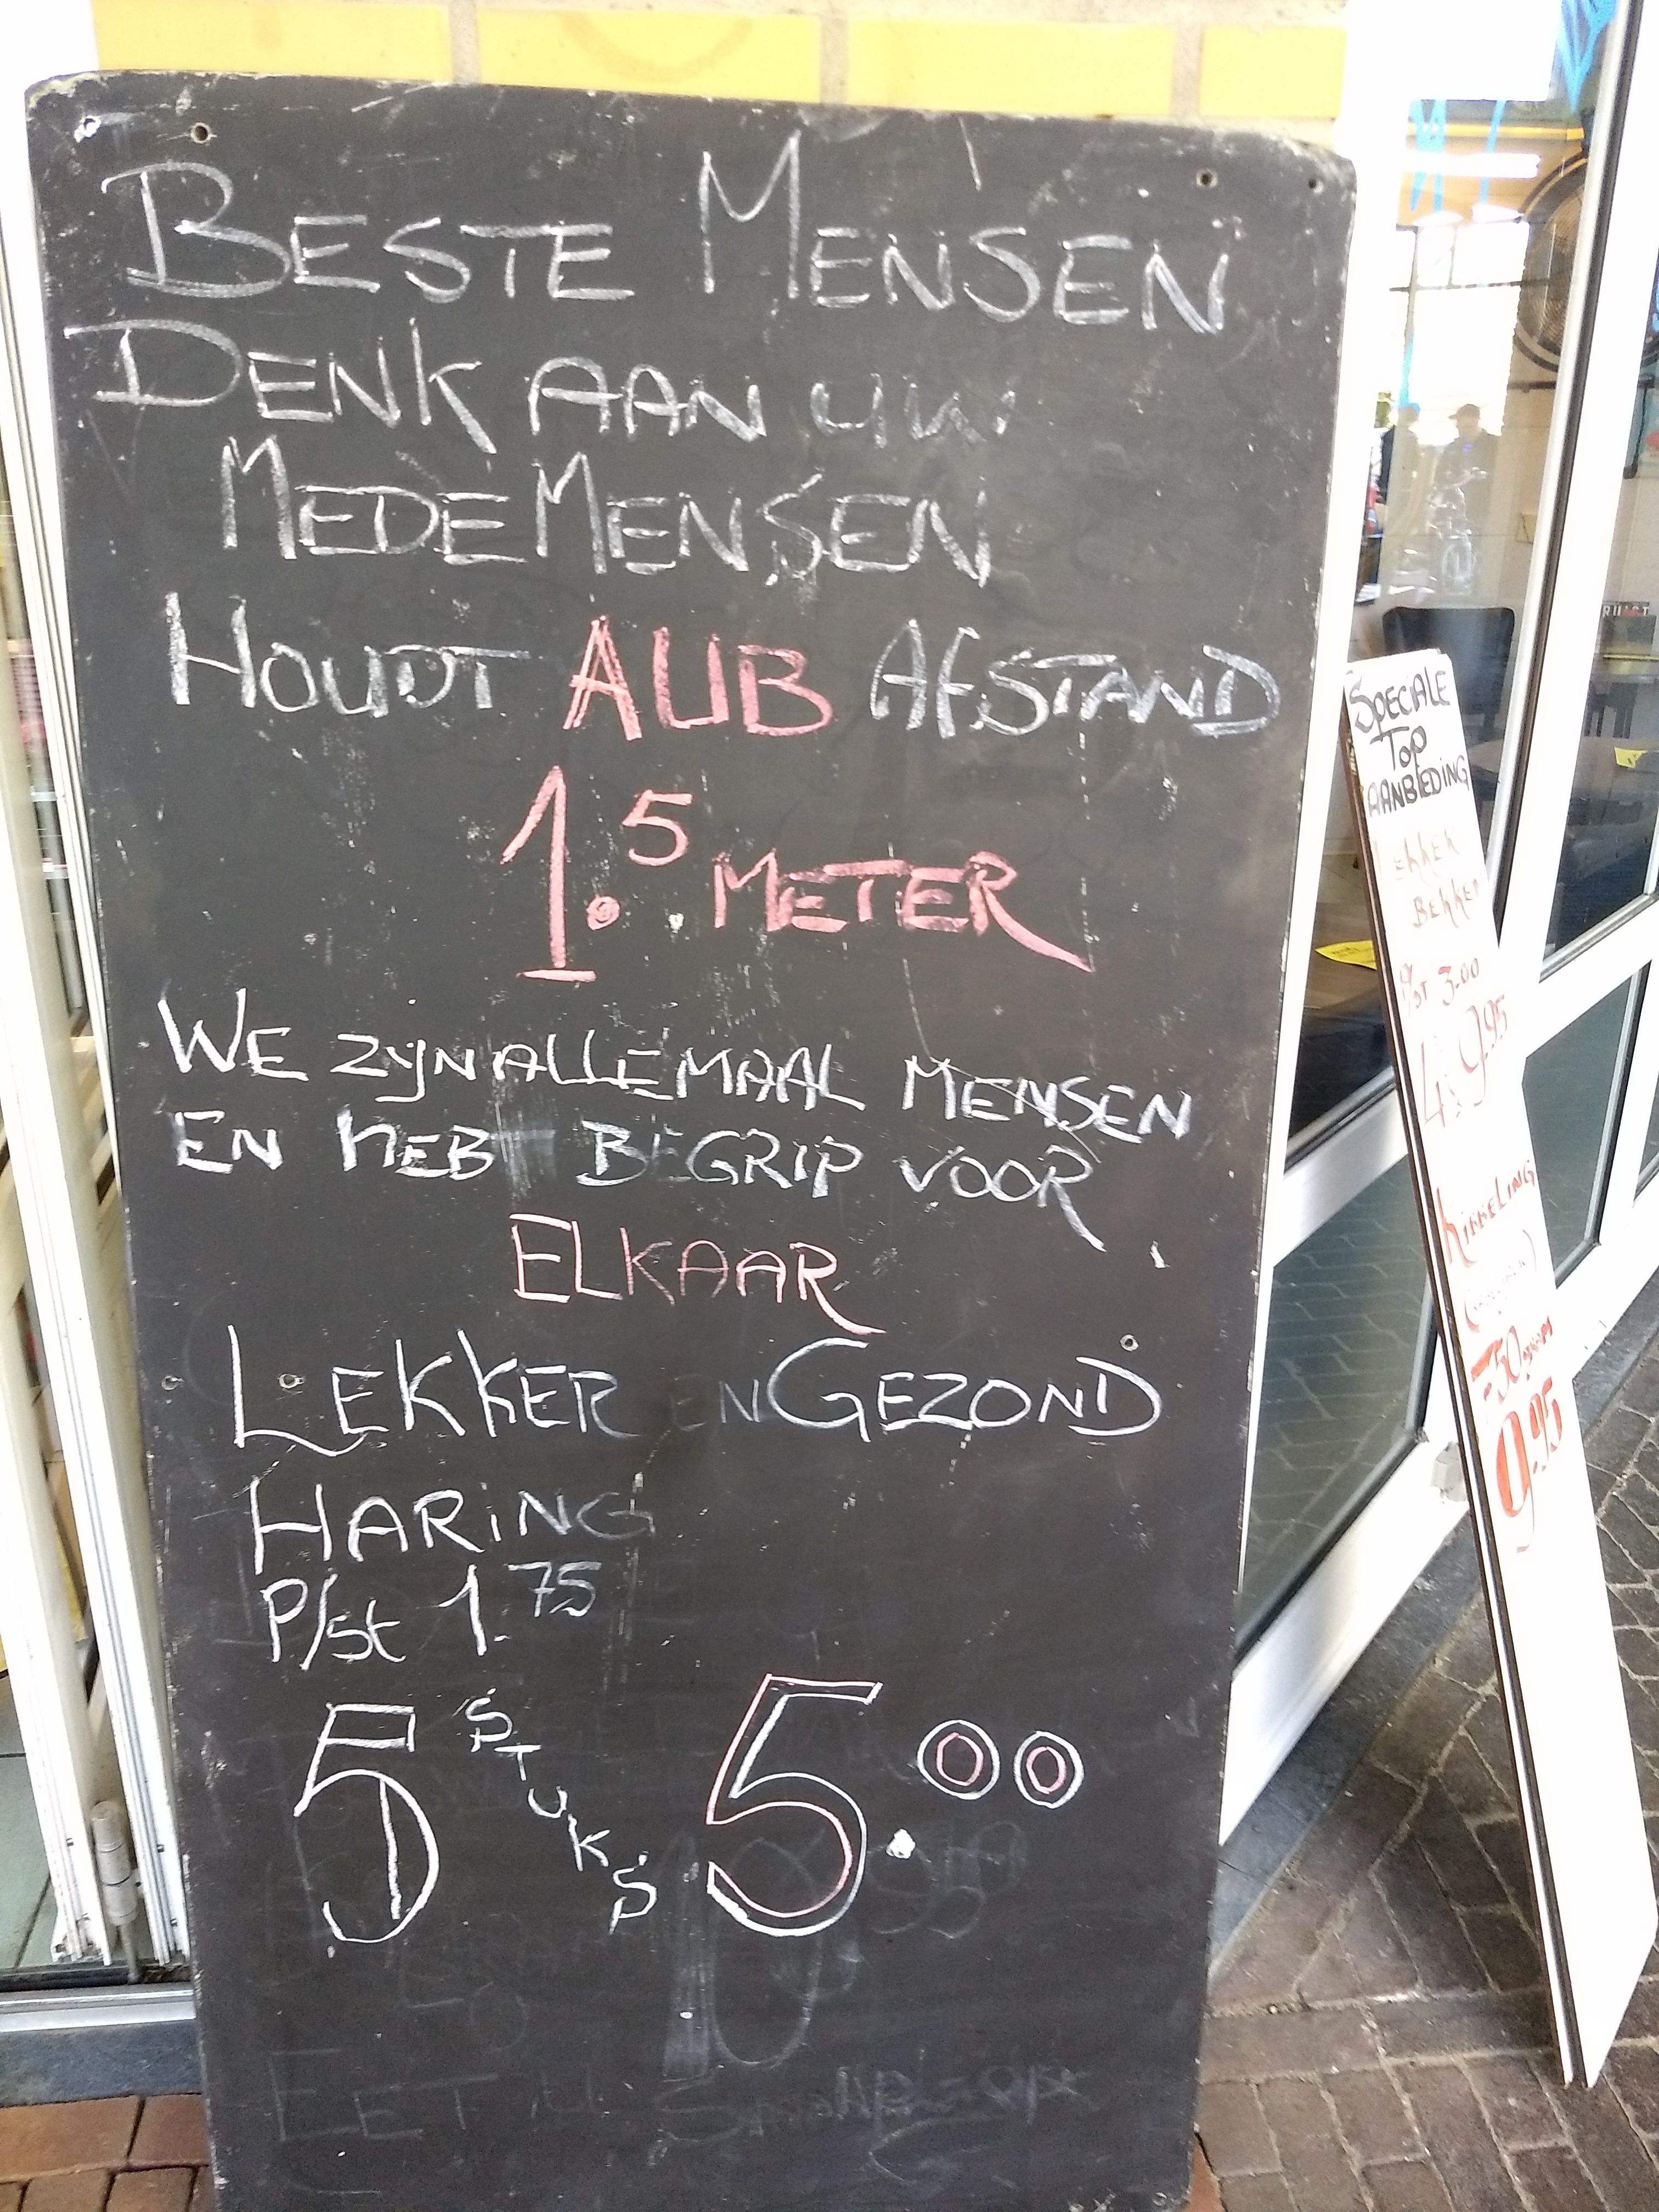 BESTE MENSEN
DENK AAN UW
MEDEMENSEN
HOUDT AUB AFSTAND
1.5 METER
WE ZIJN ALLEMAAL MENSEN
EN HEBT BEGRIP VOOR
ELKAAR
LEKKER EN GEZOND
HARING
P/st 1.75
5 STUKS 5.00
EET U
SPECIALE
TOP
AANBIEDING
LEKKER
BEKKEN
P/ST 3.00
4 9.95
KIBBELING
750
9.95